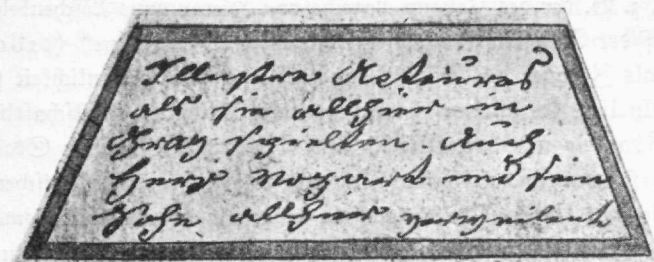 Illustre Acteures
als sie allhier in
Graz spielten. Auch
Herr Mozart und sein
Sohn allhier verweilent